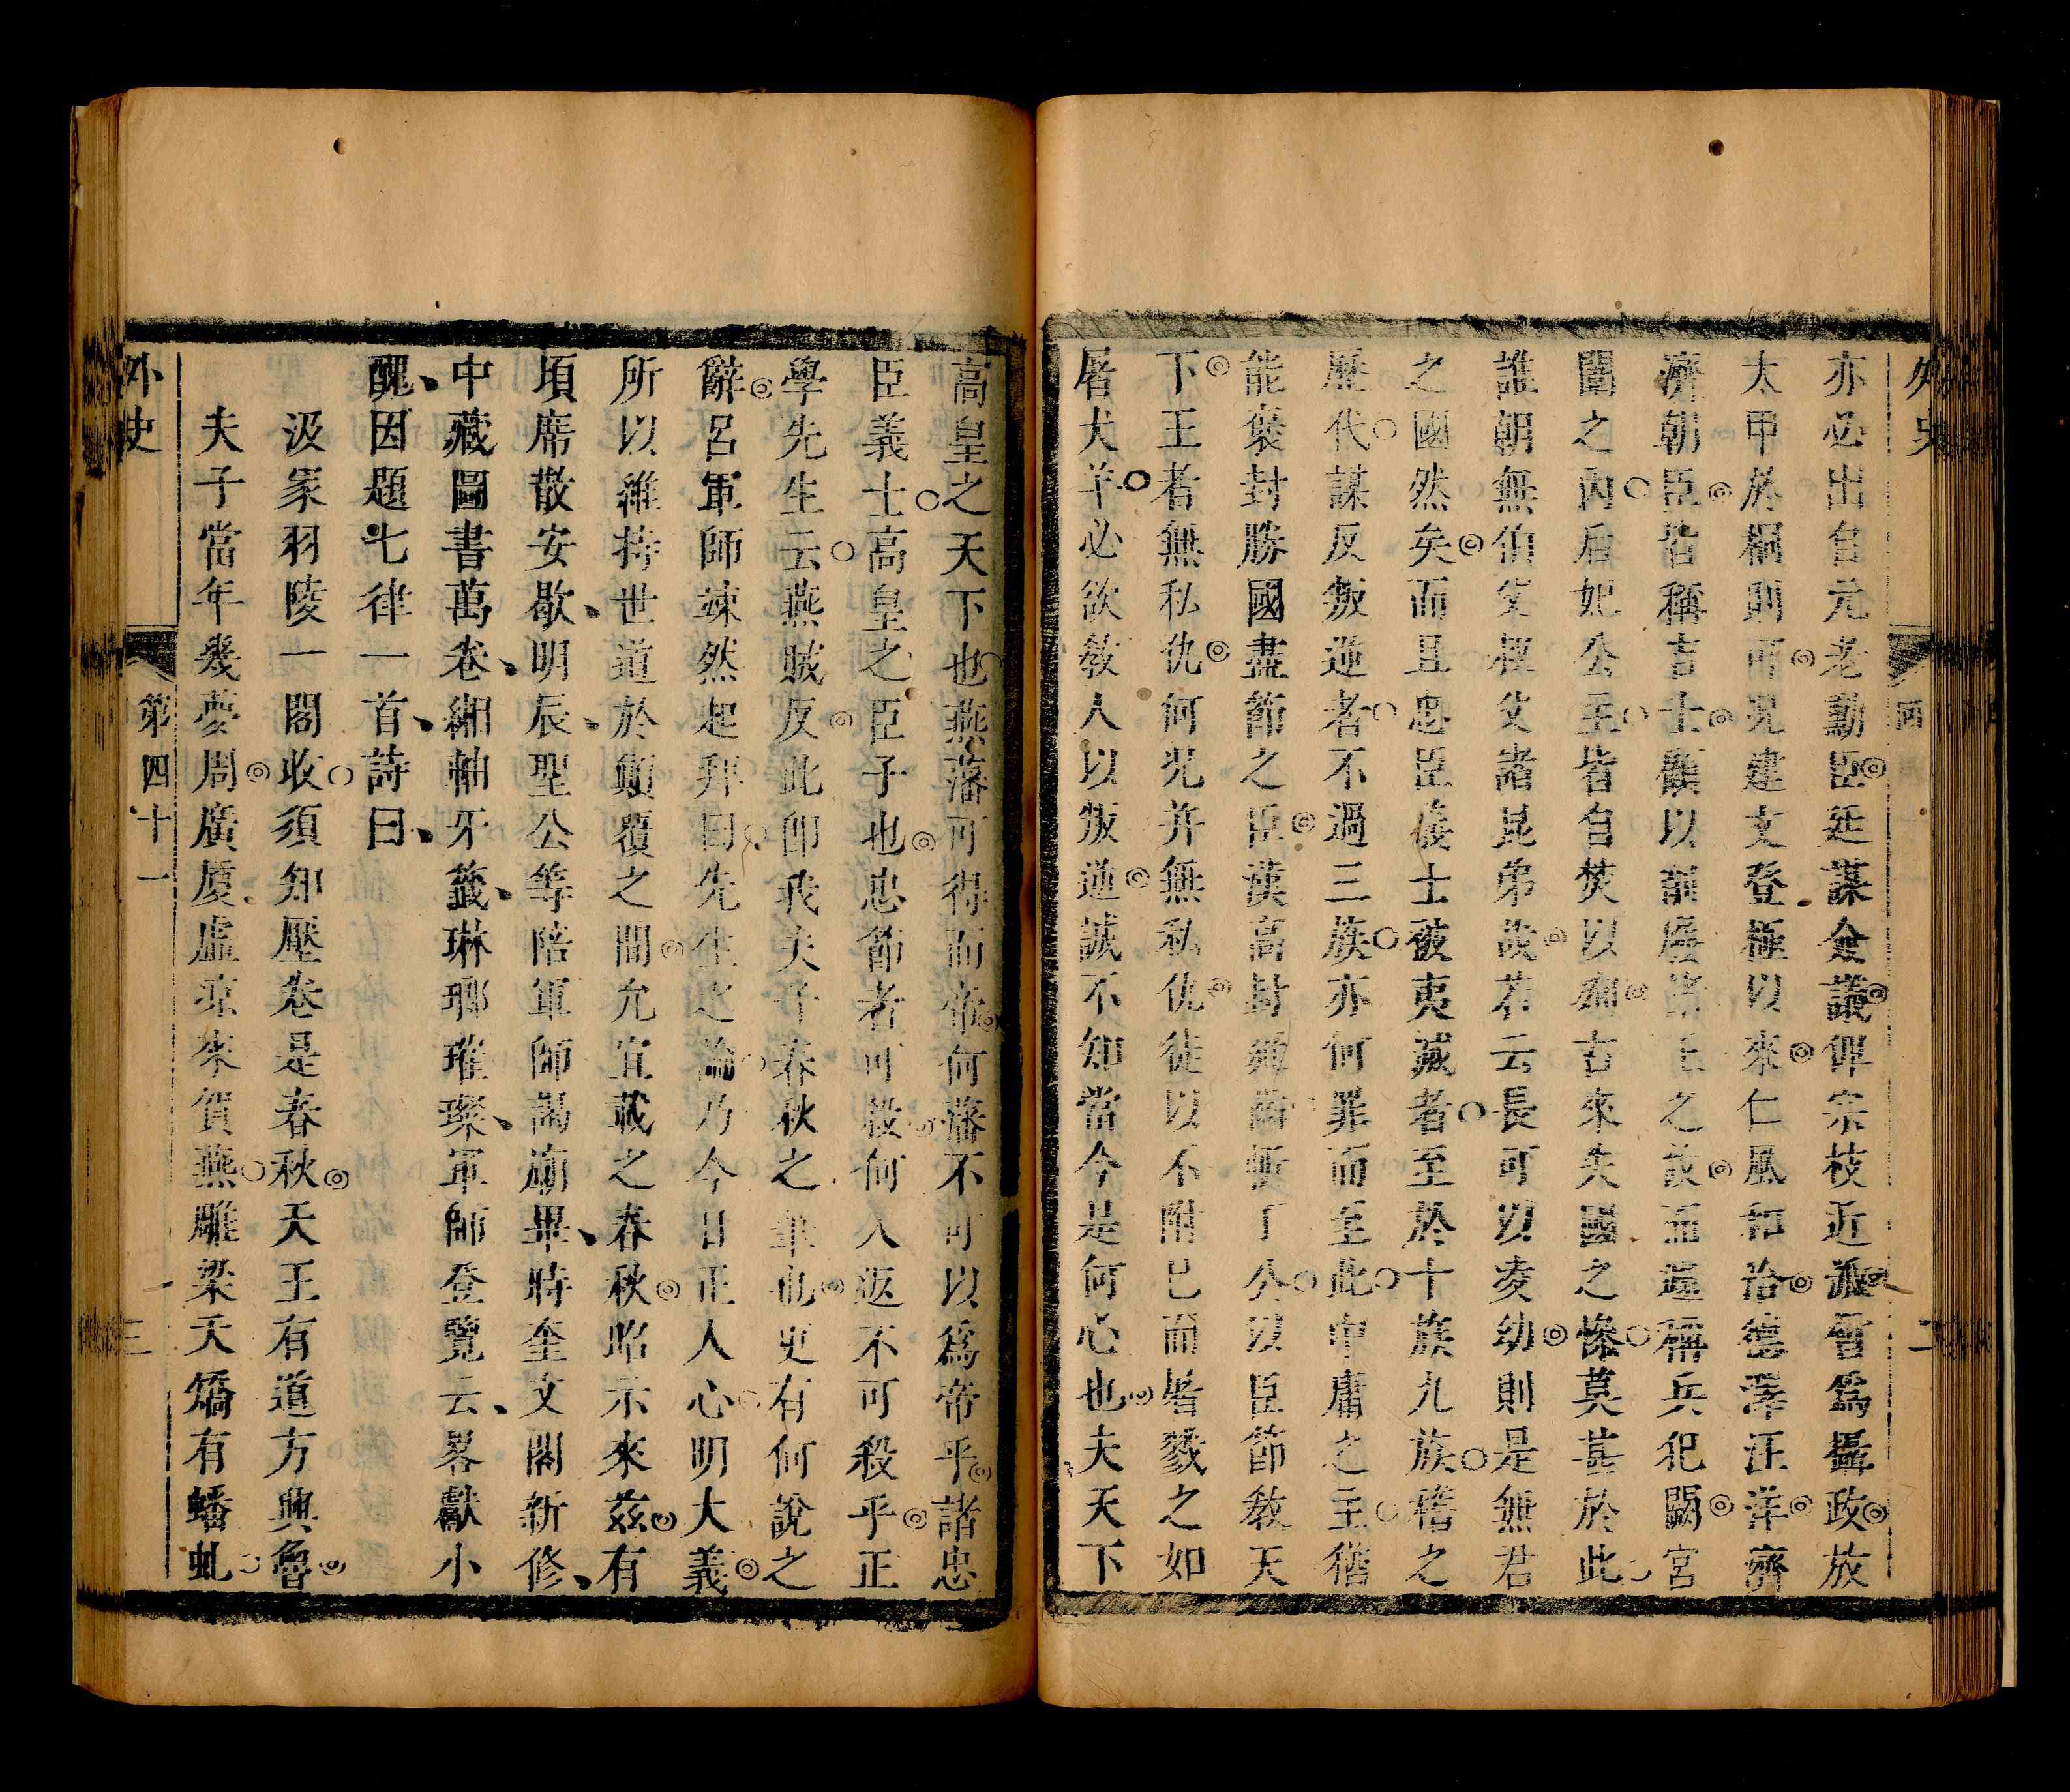 外史
二
亦必出自元老勳臣廷謀僉議俾宗枝近派晉爲攝政放
太甲於桐則可況建文登極以來仁風和洽德澤汪洋濟
濟朝臣皆稱吉士顧以前屢諸王之故而遽稱兵犯闕宮
闈之內后妃公主皆自焚以殉古來失國之慘莫甚於此
誰朝無伯父叔父諸昆弟設若云長可以凌幼則是無君
之國然矣而且忠臣義士彼夷滅者至於十族九族稽之
歷代謀反叛逆者不過三族亦何罪而至此中庸之主猶
能褒封勝國盡節之臣漢高封雍齒斬丁公以臣節教天
下王者無私仇何況并無私仇徒以不附已而屠戮之如
屠犬羊必欲教人以叛逆誠不知當今是何心也夫天下
高皇之天下也燕藩可得而帝何藩不可以爲帝乎諸忠
臣義士高皇之臣子也忠節者可殺何人返不可殺乎正
學先生云燕賊反此卽我夫子春秋之筆也更有何說之
辭呂軍師竦然起拜曰先生之論乃今日正人心明大義
所以維持世道於顛覆之間允宜載之春秋昭示來茲有
頃席散安歇明辰聖公等陪軍師謁廟畢時奎文閣新修
中藏圖書萬卷緗軸牙籤琳瑯璀璨軍師登覽云畧獻小
醜因題七律一首詩曰
汲冢羽陵一閣收須知壓卷是春秋天王有道方興魯
夫子當年幾夢周廣厦虛凉來賀燕雕梁夭矯有蟠虬
外史
第四十一
三